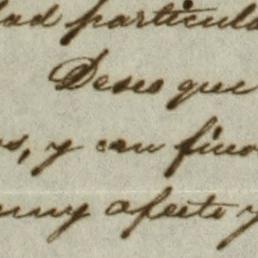 dad particula
Deseo que
os, y con finos
muy afecto y